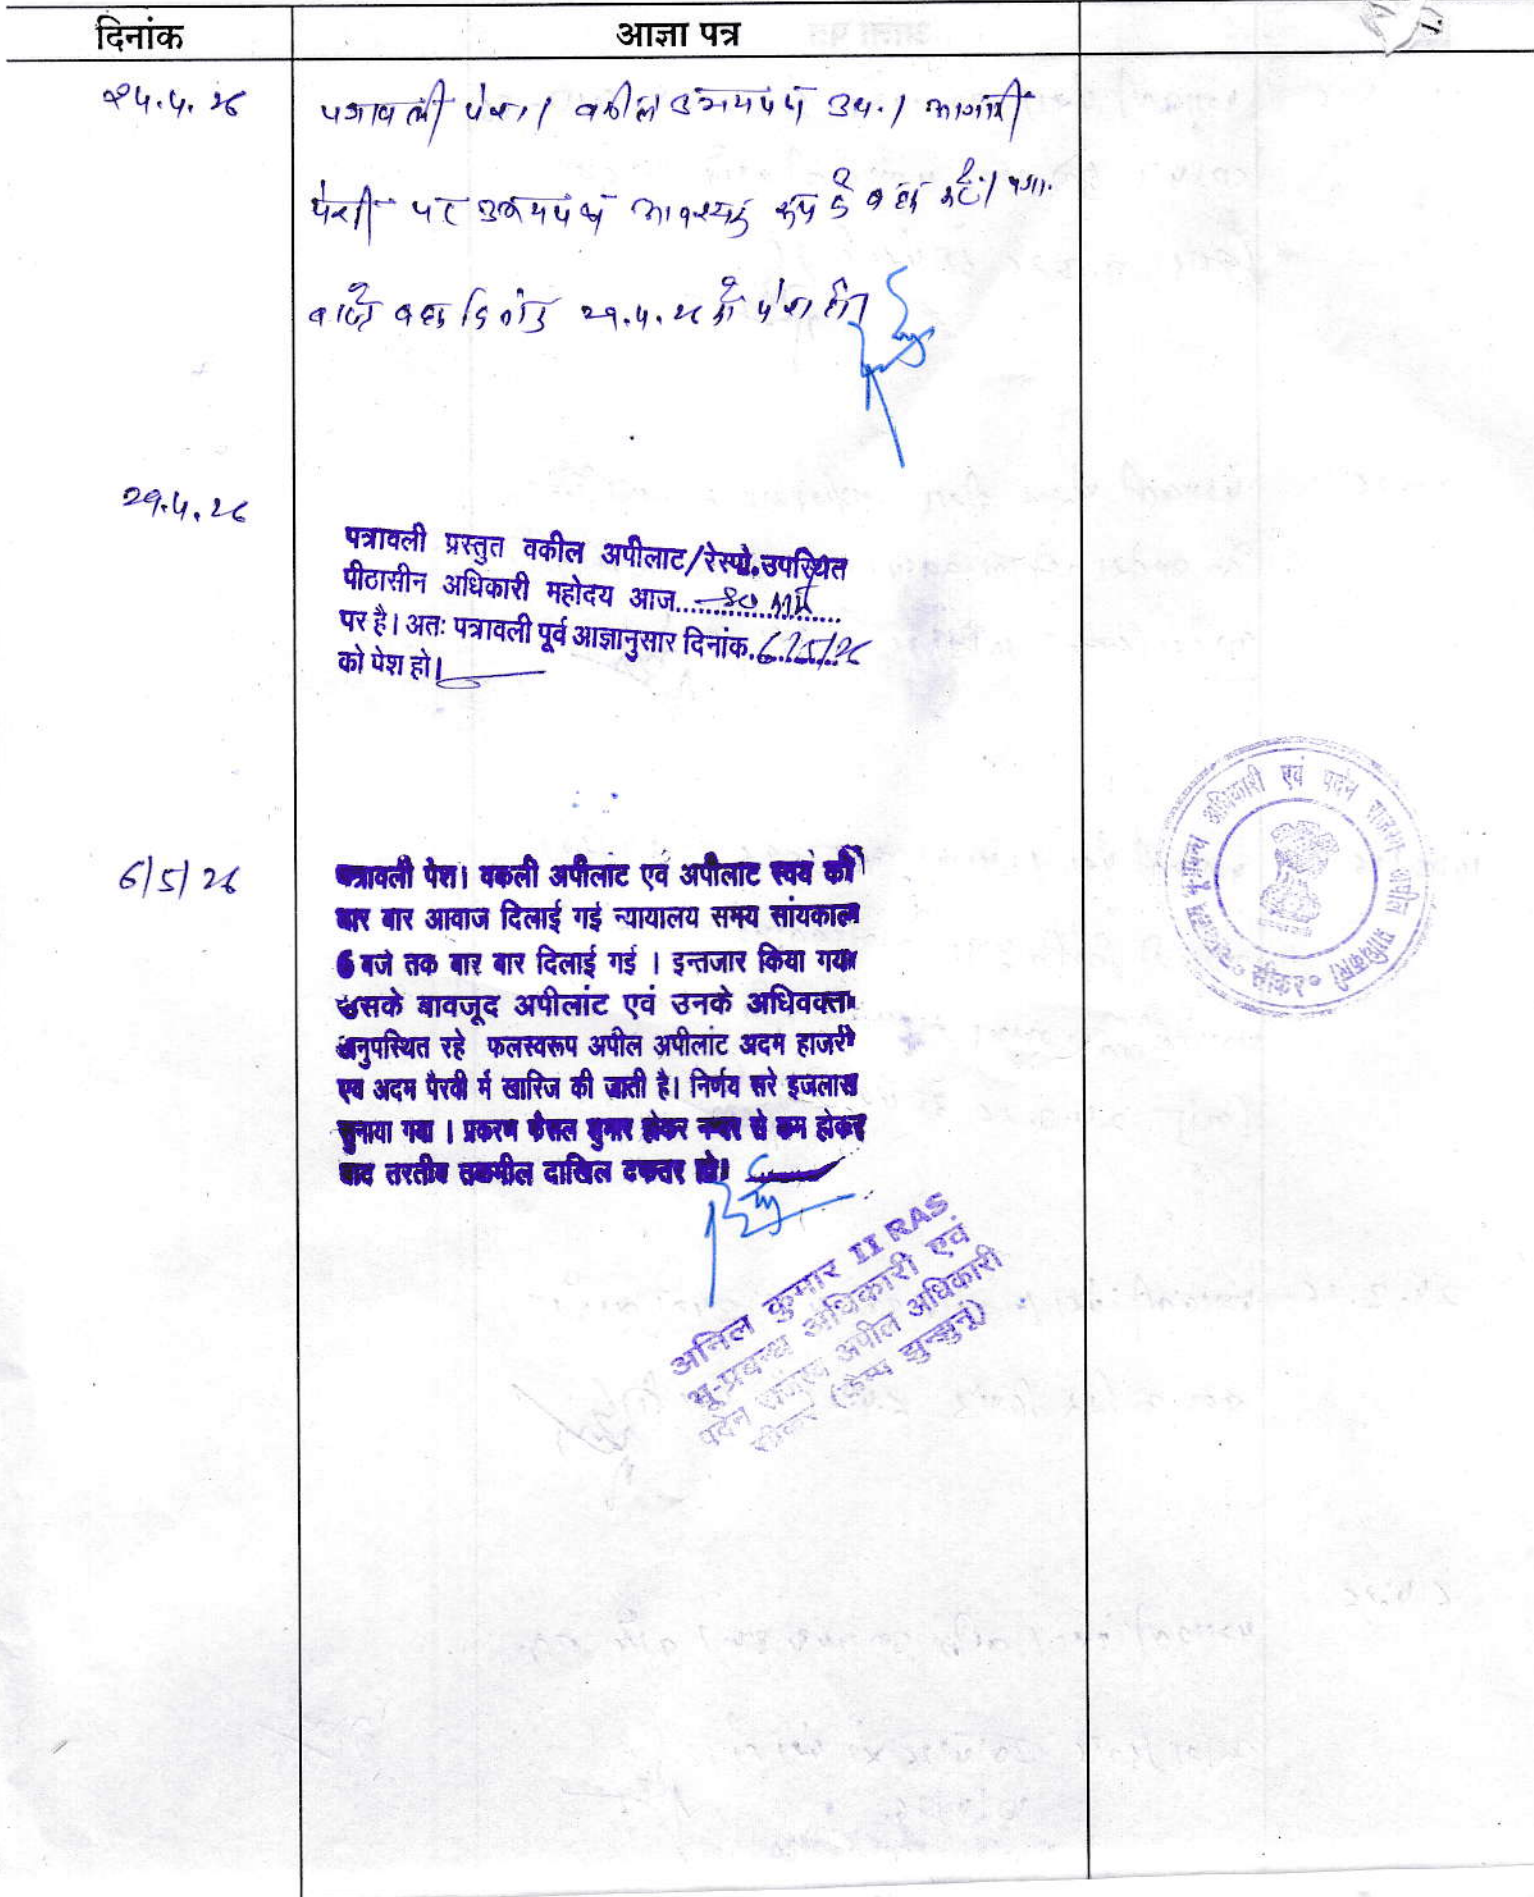 दिनांक
आज्ञा पत्र
पत्रावली पेश। वकील उभयपक्ष उप.। आगामी
पेशी पर उभयपक्ष आवश्यक रूप से बहस करें। पत्रा.
वास्ते बहस दिनांक 29.4.26 को पेश हो।
29.4.26
पत्रावली प्रस्तुत वकील अपीलाट/रेस्पो.उपस्थित
पीठासीन अधिकारी महोदय आज
पर है। अतः पत्रावली पूर्व आज्ञानुसार दिनांक 6/5/26
को पेश हो।
6/5/26
पत्रावली पेश। वकली अपीलांट एवं अपीलाट स्वयं की
बार बार आवाज दिलाई गई न्यायालय समय सांयकाल
6 बजे तक बार बार दिलाई गई । इन्तजार किया गया
उसके बावजूद अपीलांट एवं उनके अधिवक्ता
अनुपस्थित रहे फलस्वरूप अपील अपीलांट अदम हाजरी
एव अदम पैरवी में खारिज की जाती है। निर्णय सरे इजलास
सुनाया गया । प्रकरण फैसल शुमार होकर नम्बर से कम होकर
बाद तरतीब तकमील दाखिल दफ्तर हो।
अनिल कुमार II RAS
भू-प्रबन्ध अधिकारी एवं
पदेन राजस्व अपील अधिकारी
सीकर (कैम्प झुन्झुनूं)
भू-प्रबन्ध अधिकारी एवं पदेन राजस्व अपील प्राधिकारी सीकर